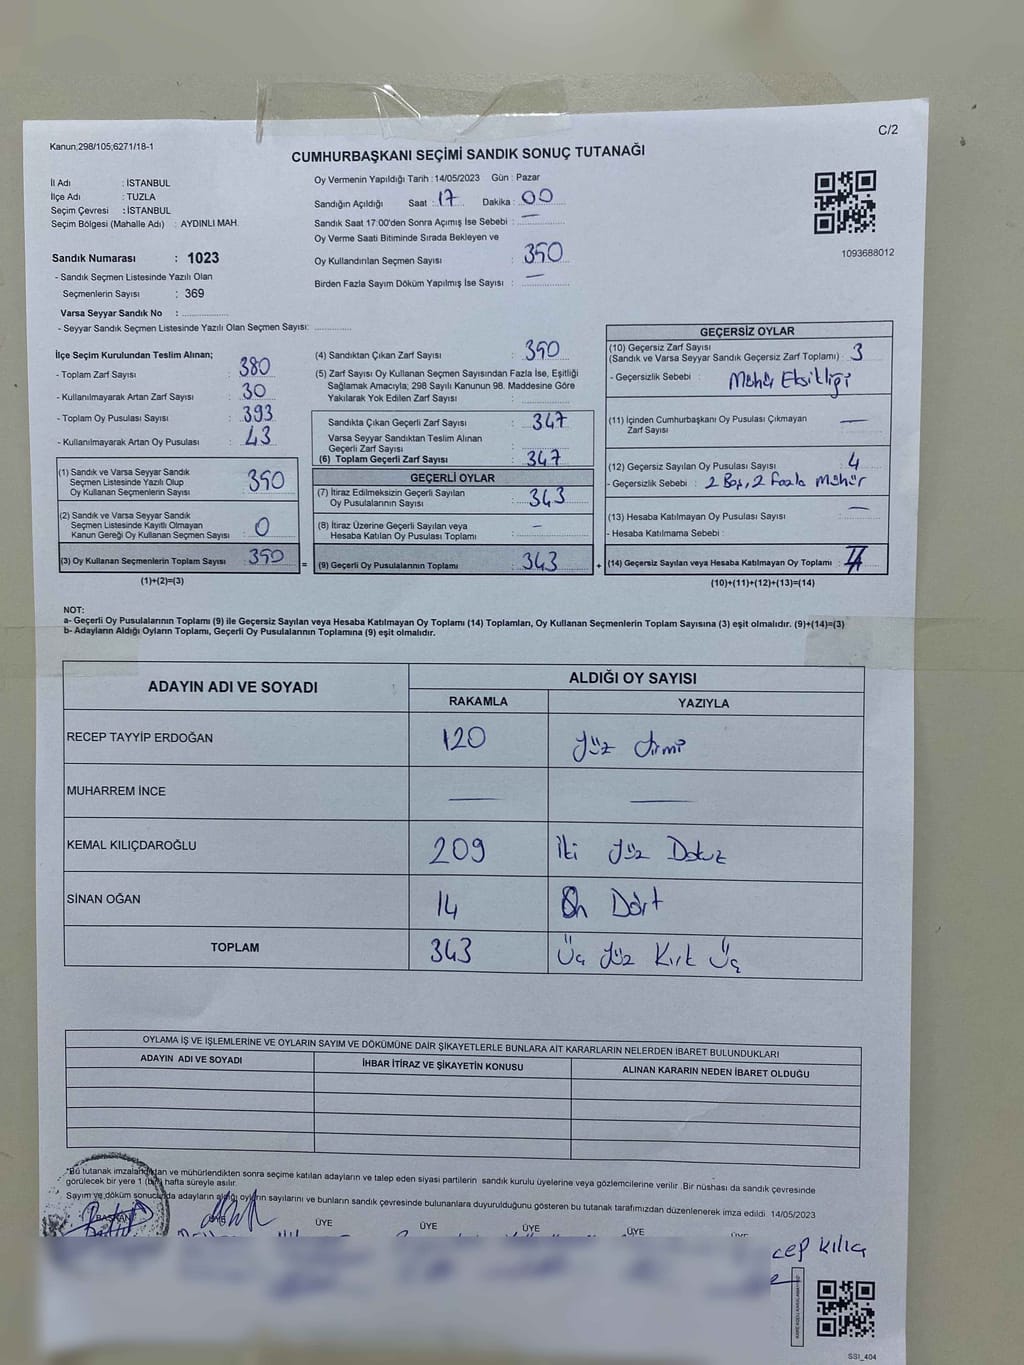 C/2
Kanun;298/105;6271/18-1
CUMHURBAŞKANI SEÇİMİ SANDIK SONUÇ TUTANAĞI
İl Adı : İSTANBUL
İlçe Adı : TUZLA
Seçim Çevresi : İSTANBUL
Seçim Bölgesi (Mahalle Adı) : AYDINLI MAH.
Sandık Numarası : 1023
- Sandık Seçmen Listesinde Yazılı Olan
Seçmenlerin Sayısı : 369
Varsa Seyyar Sandık No :
- Seyyar Sandık Seçmen Listesinde Yazılı Olan Seçmen Sayısı:
Oy Vermenin Yapıldığı Tarih : 14/05/2023 Gün : Pazar
Sandığın Açıldığı Saat : 17 Dakika : 00
Sandık Saat 17:00'den Sonra Açımış İse Sebebi : —
Oy Verme Saati Bitiminde Sırada Bekleyen ve
Oy Kullandırılan Seçmen Sayısı : 350
Birden Fazla Sayım Döküm Yapılmış İse Sayısı : —
1093688012
İlçe Seçim Kurulundan Teslim Alınan;
- Toplam Zarf Sayısı : 380
- Kullanılmayarak Artan Zarf Sayısı : 30
- Toplam Oy Pusulası Sayısı : 393
- Kullanılmayarak Artan Oy Pusulası : 43
(1) Sandık ve Varsa Seyyar Sandık
Seçmen Listesinde Yazılı Olup
Oy Kullanan Seçmenlerin Sayısı : 350
(2) Sandık ve Varsa Seyyar Sandık
Seçmen Listesinde Kayıtlı Olmayan
Kanun Gereği Oy Kullanan Seçmen Sayısı : 0
(3) Oy Kullanan Seçmenlerin Toplam Sayısı : 350
(1)+(2)=(3)
(4) Sandıktan Çıkan Zarf Sayısı : 350
(5) Zarf Sayısı Oy Kullanan Seçmen Sayısından Fazla İse, Eşitliği
Sağlamak Amacıyla; 298 Sayılı Kanunun 98. Maddesine Göre
Yakılarak Yok Edilen Zarf Sayısı :
Sandıkta Çıkan Geçerli Zarf Sayısı : 347
Varsa Seyyar Sandıktan Teslim Alınan
Geçerli Zarf Sayısı :
(6) Toplam Geçerli Zarf Sayısı : 347
GEÇERLİ OYLAR
(7) İtiraz Edilmeksizin Geçerli Sayılan
Oy Pusulalarının Sayısı : 343
(8) İtiraz Üzerine Geçerli Sayılan veya
Hesaba Katılan Oy Pusulası Toplamı : —
= (9) Geçerli Oy Pusulalarının Toplamı : 343
GEÇERSİZ OYLAR
(10) Geçersiz Zarf Sayısı
(Sandık ve Varsa Seyyar Sandık Geçersiz Zarf Toplamı) : 3
- Geçersizlik Sebebi : Mühür Eksikliği
(11) İçinden Cumhurbaşkanı Oy Pusulası Çıkmayan
Zarf Sayısı : —
(12) Geçersiz Sayılan Oy Pusulası Sayısı : 4
- Geçersizlik Sebebi : 2 Boş, 2 Fazla Mühür
(13) Hesaba Katılmayan Oy Pusulası Sayısı : —
- Hesaba Katılmama Sebebi :
+ (14) Geçersiz Sayılan veya Hesaba Katılmayan Oy Toplamı :
(10)+(11)+(12)+(13)=(14)
NOT:
a- Geçerli Oy Pusulalarının Toplamı (9) ile Geçersiz Sayılan veya Hesaba Katılmayan Oy Toplamı (14) Toplamları, Oy Kullanan Seçmenlerin Toplam Sayısına (3) eşit olmalıdır. (9)+(14)=(3)
b- Adayların Aldığı Oyların Toplamı, Geçerli Oy Pusulalarının Toplamına (9) eşit olmalıdır.
ADAYIN ADI VE SOYADI ALDIĞI OY SAYISI
RAKAMLA YAZIYLA
RECEP TAYYİP ERDOĞAN 120 Yüz Yirmi
MUHARREM İNCE — —
KEMAL KILIÇDAROĞLU 209 İki Yüz Dokuz
SİNAN OĞAN 14 On Dört
TOPLAM 343 Üç Yüz Kırk Üç
OYLAMA İŞ VE İŞLEMLERİNE VE OYLARIN SAYIM VE DÖKÜMÜNE DAİR ŞİKAYETLERLE BUNLARA AİT KARARLARIN NELERDEN İBARET BULUNDUKLARI
ADAYIN ADI VE SOYADI İHBAR İTİRAZ VE ŞİKAYETİN KONUSU ALINAN KARARIN NEDEN İBARET OLDUĞU
*Bu tutanak imzalandıktan ve mühürlendikten sonra seçime katılan adayların ve talep eden siyasi partilerin sandık kurulu üyelerine veya gözlemcilerine verilir. Bir nüshası da sandık çevresinde
görülecek bir yere 1 (bir) hafta süreyle asılır.
Sayım ve döküm sonucunda adayların aldığı oyların sayılarını ve bunların sandık çevresinde bulunanlara duyurulduğunu gösteren bu tutanak tarafımızdan düzenlenerek imza edildi. 14/05/2023
BAŞKAN ÜYE ÜYE ÜYE ÜYE ÜYE
cep Kılıç
SSI_404